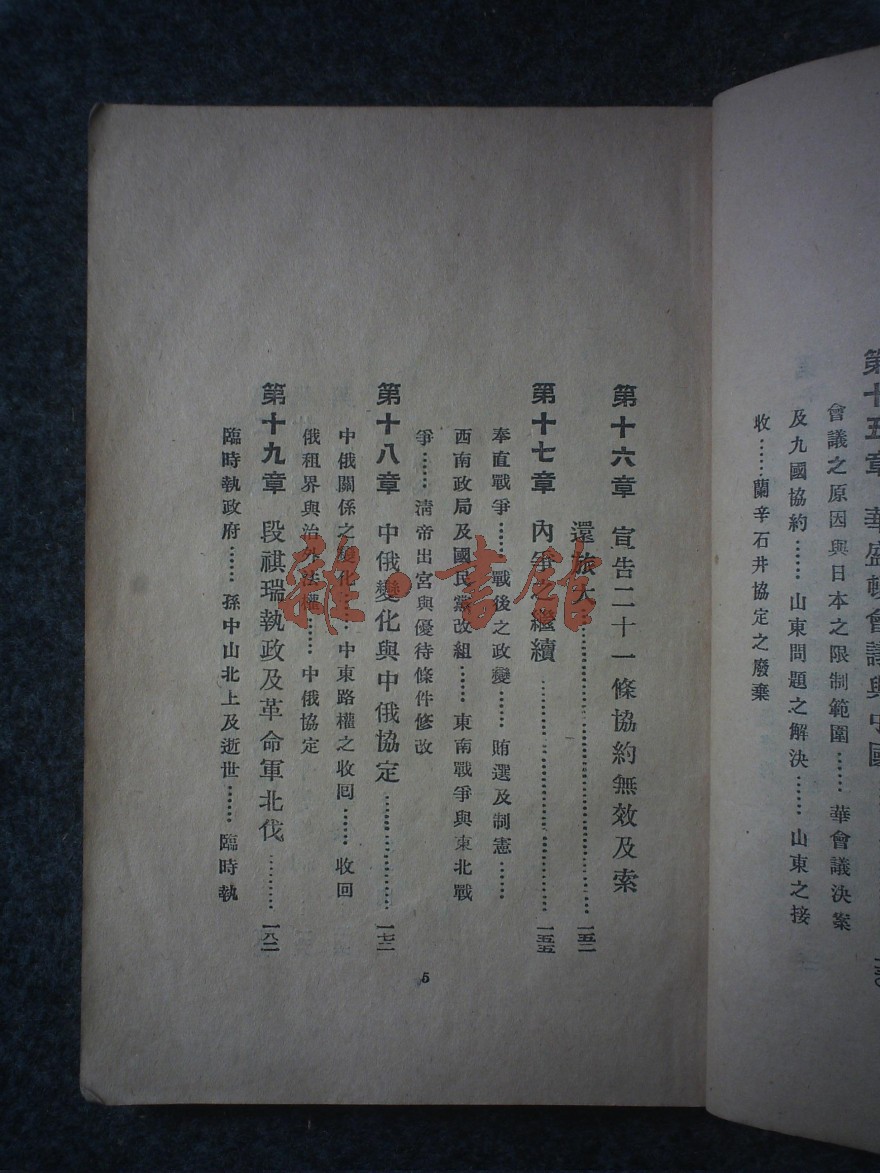 第十五章 華盛頓會議與中國
會議之原因與日本之限制範圍……華會議決案
及九國協約……山東問題之解決……山東之接
收……蘭辛石井協定之廢棄
第十六章 宣告二十一條協約無效及索
還旅大……一五二
第十七章 內爭之繼續……一五五
奉直戰爭……戰後之政變……賄選及制憲……
西南政局及國民黨改組……東南戰爭與東北戰
爭……清帝出宮與優待條件修改
第十八章 中俄變化與中俄協定……一七二
中俄關係之變化……中東路權之收回……收回
俄租界與治外法權……中俄協定
第十九章 段祺瑞執政及革命軍北伐……一八二
臨時執政府……孫中山北上及逝世……臨時執
5
雜·書館